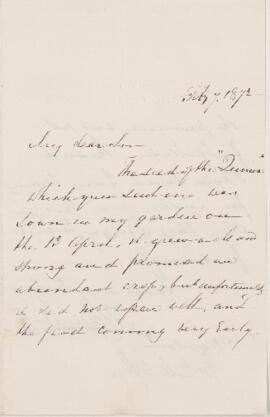 Feby 7. 1872
My dear Sir
The seed of the "Quinoa"
which you sent me was
sown in my garden on
the 1st April, it grew and
strong and promised an
abundant crop, but unfortunately
it did not ripen well, and
the frost coming very early